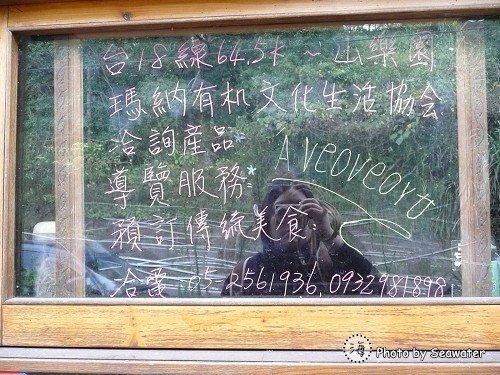 台18線64.5K~山樂園
瑪納有机文化生活協会
洽詢產品
導覽服務
Aveoveoyu
預訂傳統美食
合電:05-2561936.0932981898
海 Photo by Seawater